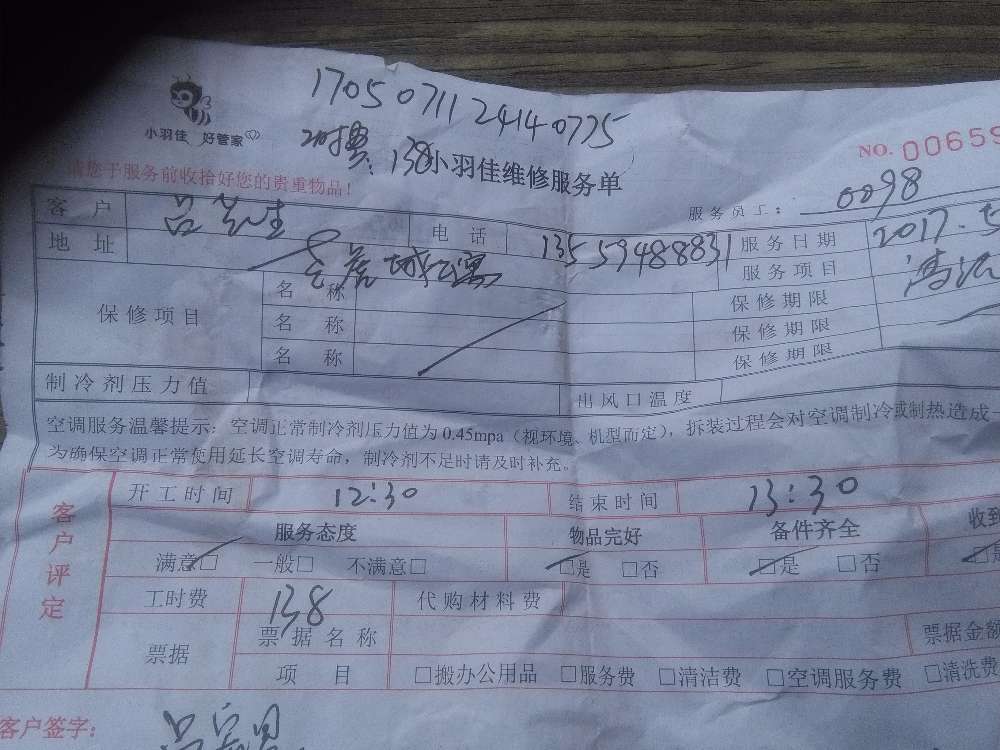 1705071124140775
小羽佳 好管家
时费：138
小羽佳维修服务单
NO. 00659
请您于服务前收拾好您的贵重物品！
服务员工： 0098
客 户 吕先生 电 话 13559488831 服务日期 2017.5
地 址 城公寓 服务项目 清洗
保修项目 名 称 保修期限
名 称 保修期限
名 称 保修期限
制冷剂压力值 出风口温度
空调服务温馨提示：空调正常制冷剂压力值为 0.45mpa（视环境、机型而定），拆装过程会对空调制冷或制热造成
为确保空调正常使用延长空调寿命，制冷剂不足时请及时补充。
客户评定
开工时间 12:30 结束时间 13:30
服务态度 物品完好 备件齐全 收到
满意□ 一般□ 不满意□ □是 □否 □是 □否 □是
工时费 138 代购材料费
票据 票据名称 票据金额
项 目 □搬办公用品 □服务费 □清洁费 □空调服务费 □清洗费
客户签字：